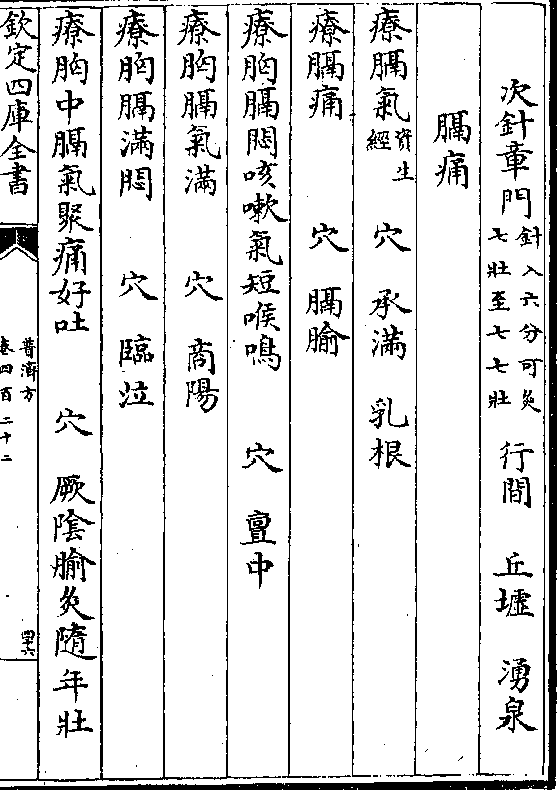 次針章門針入六分可灸七壯至七七壯 行間 丘墟 湧泉
膈痛
療膈氣資生經 穴 承滿 乳根
療膈痛 穴 膈腧
療胸膈悶咳嗽氣短喉鳴 穴 亶中
療胸膈氣滿 穴 商陽
療胸膈滿悶 穴 臨泣
療胸中膈氣聚痛好吐 穴 厥陰腧灸隨年壯
欽定四庫全書
普濟方
卷四百二十二
四十六